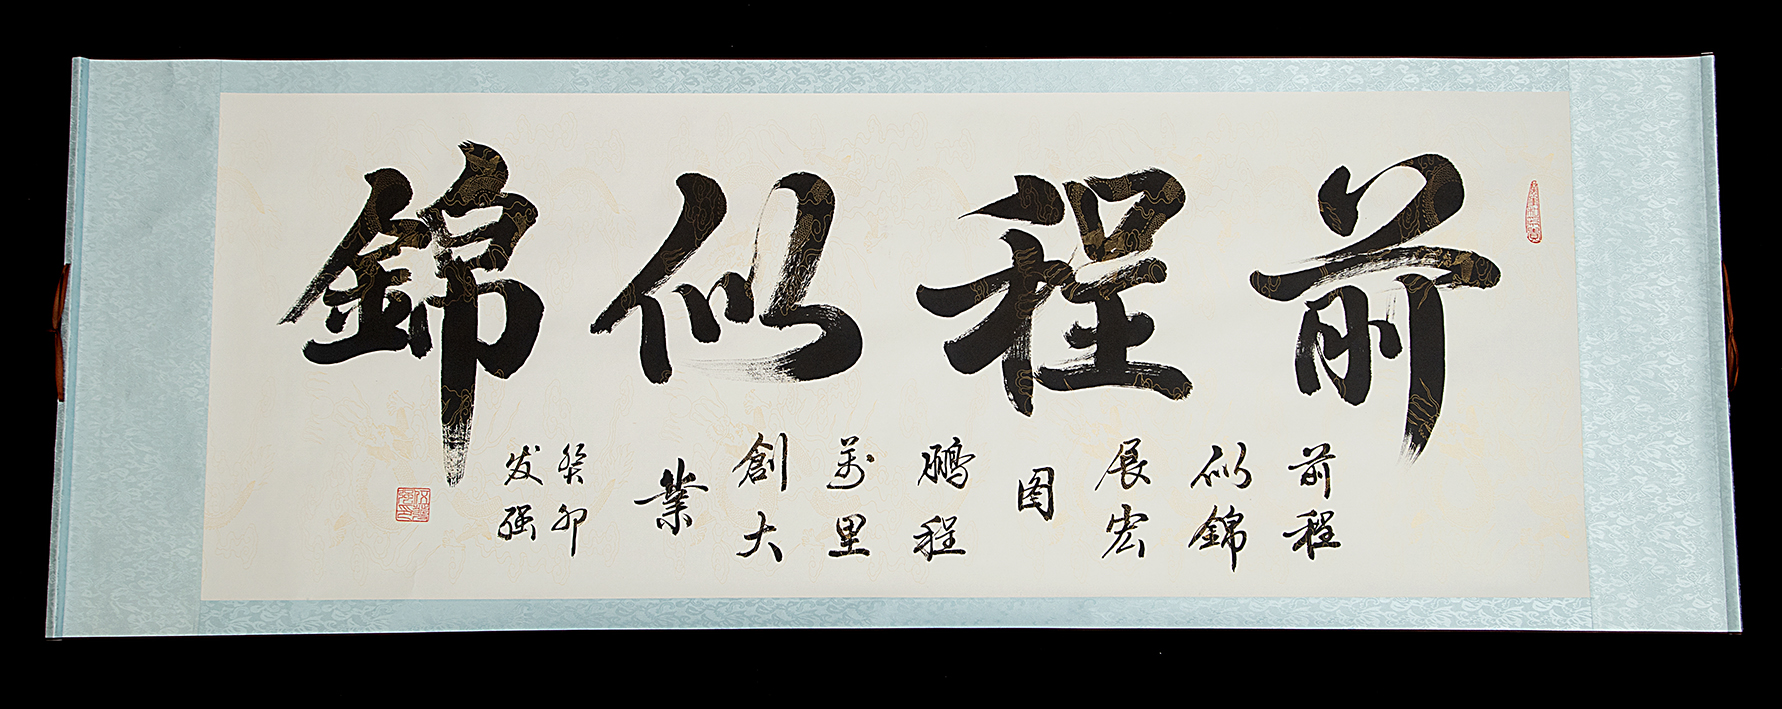 前程似錦
前程
似錦
展宏
图
鹏程
万里
創大
業
癸卯
发强